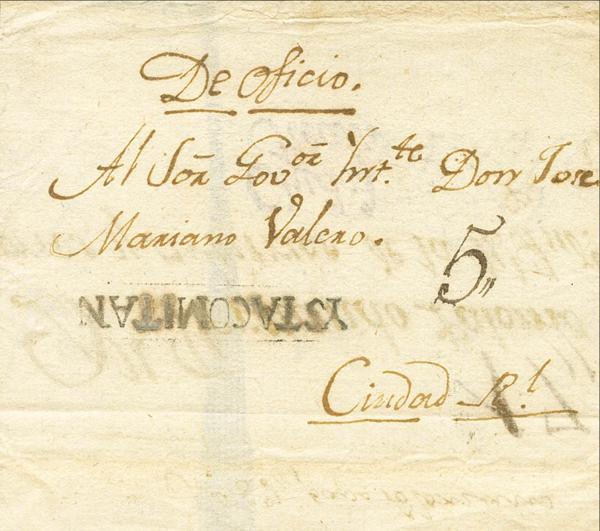 De Oficio.
Al Sor. Govor Intte. Don Jose
Mariano Valero.
5
YSTACOMITAN
Ciudad Rl.